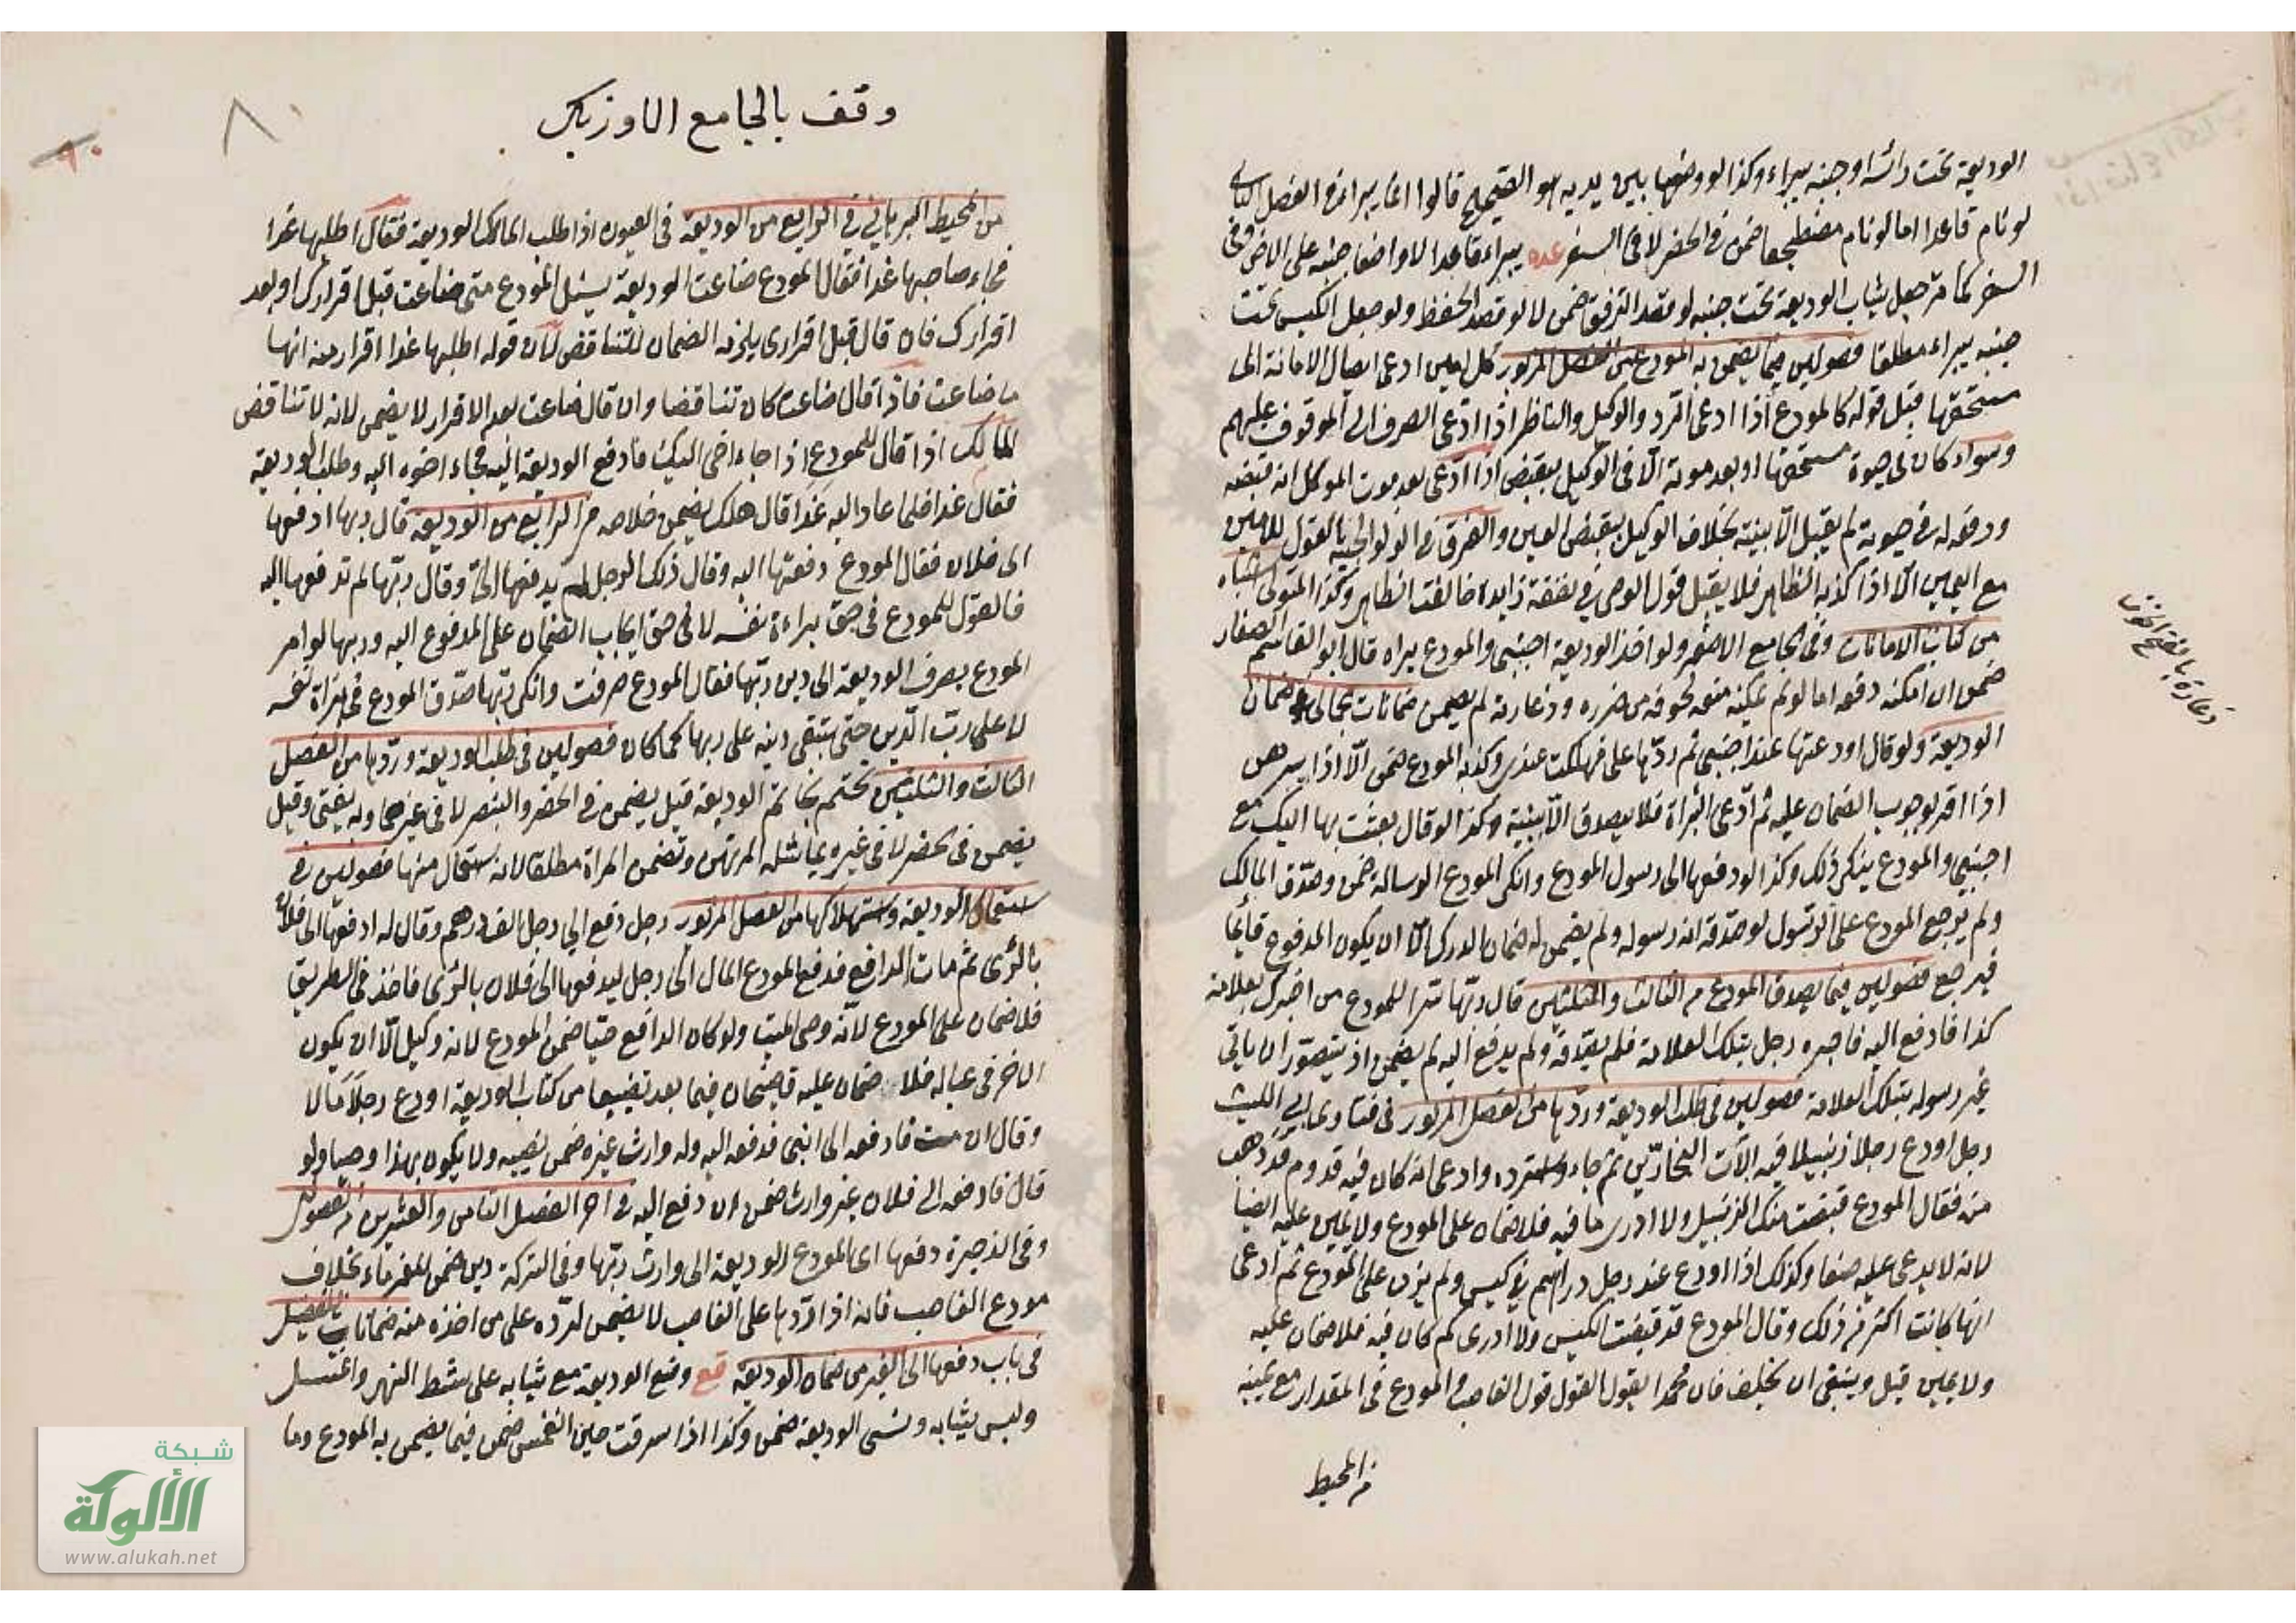 الوديعة تحت رأسه او جنبه يبراء وكذا لو وضعها بين يديه هو الصحيح قالوا انما يبراء في الفصل الثاني
لو نام قاعدا اما لو نام مضطجعا ضمن في الحضر لا في السفر عده يبراء قاعدا لا واضعا جنبه على الارض وفي
السفر كما مر جعل ثياب الوديعة تحت جنبه لو قصد الترفق ضمن لا لو قصد الحفظ ولو جعل الكيس تحت
جنبه يبراء مطلقا فصولين فيما يضمن به المودع من الفصل المزبور كل امين ادعى ايصال الامانة الى
مستحقها قبل قوله كالمودع اذا ادعى الرد والوكيل والناظر اذا ادعى الصرف الى الموقوف عليهم
وسواء كان في حيوة مستحقها او بعد موته الا في الوكيل بقبض اذا ادعى بعد موت الموكل انه قبضه
ودفعه له في حيوته لم يقبل الا ببينة بخلاف الوكيل بقبض العين والفرق في الولوالجية القول للامين
مع اليمين الا اذا كذبه الظاهر فلا يقبل قول الوصي في نفقة زايدة خالفت الظاهر وكذا المتولي اشباه
من كتاب الامانات وفي الجامع الاصغر ولو اخذ الوديعة اجنبي والمودع يراه قال ابو القاسم الصفار
ضمن ان امكنه دفعه اما لو لم يمكنه منعه لخوفه من ضرره ودعارته لم يضمن ضمانات في ضمان
الوديعة ولو قال اودعتها عند اجنبي ثم ردها علي فهلكت عندي وكذبه المودع ضمن الا اذا برهن
اذا اقر بوجوب الضمان عليه ثم ادعى البرأة فلا يصدق الا ببينة وكذا لو قال بعثت بها اليك مع
اجنبي والمودع ينكر ذلك وكذا لو دفعها الى رسول المودع وانكر المودع الرسالة ضمن وصدق المالك
ولم يرجع المودع على الرسول لو صدقه انه رسوله ولم يضمن له ضمان الدرك الا ان يكون المدفوع قائما
فيرجع فصولين فيما يصدق المودع من الثالث والثلثين قال ربها سرا للمودع من اخبرك بعلامة
كذا فادفع اليه فاخبره رجل بتلك العلامة فلم يصدقه ولم يدفع اليه لم يضمن اذ يتصور ان ياتي
غير رسوله بتلك العلامة فصولين في طلب الوديعة وردها من الفصل المزبور في فتاوى ابي الليث
رجل اودع رجلا زنبيلا فيه آلات النجارين ثم جاء واسترده وادعى انه كان فيه قدوم قد ذهب
منه فقال المودع قبضت منك الزنبيل ولا ادري ما فيه فلا ضمان على المودع ولا يمين عليه ايضا
لانه لا يدعي عليه صنعا وكذلك اذا اودع عند رجل دراهم في كيس ولم يزن على المودع ثم ادعى
انها كانت اكثر من ذلك وقال المودع قد قبضت الكيس ولا ادري كم كان فيه فلا ضمان عليه
ولا يمين قيل وينبغي ان يحلف فان محمدا يقول القول قول الغاصب والمودع في المقدار مع يمينه
من المحيط
دعارة بالفتح
وقف بالجامع الاوزبكي
٨٠
٩٠
من المحيط البرهاني في الرابع من الوديعة في العيون اذا طلب المالك الوديعة فقال اطلبها غدا
فجاء صاحبها غدا فقال المودع ضاعت الوديعة يسئل المودع متى ضاعت قبل اقرارك او بعد
اقرارك فان قال قبل اقراري يلزمه الضمان للتناقض لان قوله اطلبها غدا اقرار منه انها
ما ضاعت فاذا قال ضاعت كان تناقضا وان قال ضاعت بعد الاقرار لا يضمن لانه لا تناقض
المالك اذا قال للمودع اذا جاء اخي اليك فادفع الوديعة اليه فجاء اخوه اليه وطلب الوديعة
فقال غدا فلما عاد اليه غدا قال هلك يضمن خلاصه من الرابع من الوديعة قال ربها ادفعها
الى فلان فقال المودع دفعتها اليه وقال ذلك الرجل لم يدفعها الي وقال ربها لم تدفعها اليه
فالقول للمودع في حق براءة نفسه لا في حق ايجاب الضمان على المدفوع اليه وربها لو امر
المودع بصرف الوديعة الى دين ربها فقال المودع صرفت وانكر ربها صدق المودع في برأة نفسه
لا على رب الدين حتى يبقى دينه على ربها كما كان فصولين في طلب الوديعة وردها من الفصل
الثالث والثلثين تختم بخاتم الوديعة قيل يضمن في الخنصر والبنصر لا في غيرهما وبه يفتى وقيل
يضمن في خنصر لا في غيره بما مثله المرتهن وتضمن المرأة مطلقا لانه استعمال منها فصولين في
استعمال الوديعة واستهلاكها من الفصل المزبور رجل دفع الى رجل الف درهم وقال له ادفعها الى فلان
بالري ثم مات الدافع فدفع المودع المال الى رجل ليدفعها الى فلان بالري فاخذ في الطريق
فلا ضمان على المودع لانه وصي الميت ولو كان الدافع حيا ضمن المودع لانه وكيل الا ان يكون
الاخر في عياله فلا ضمان عليه قاضيخان فيما يعد تضييعا من كتاب الوديعة اودع رجلا مالا
وقال ان مت فادفعه الى ابني فدفعه اليه وله وارث غيره ضمن نصيبه ولا يكون بهذا وصيا ولو
قال فادفعه الى فلان غير وارث ضمن ان دفع اليه في اخر الفصل الثامن والعشرين من الفصولين
وفي الذخيرة دفعها اي المودع الوديعة الى وارث ربها وفي التركة دين ضمن للغرماء بخلاف
مودع الغاصب فانه اذا ردها على الغاصب لا يضمن لرده على من اخذه منه ضمانات بالتفصيل
في باب دفعها الى الغير من ضمان الوديعة قع وضع الوديعة مع ثيابه على شط النهر واغتسل
ولبس ثيابه ونسي الوديعة ضمن وكذا اذا سرقت حين انغمس ضمن فيما يضمن به المودع وما
شبكة
الألوكة
www.alukah.net